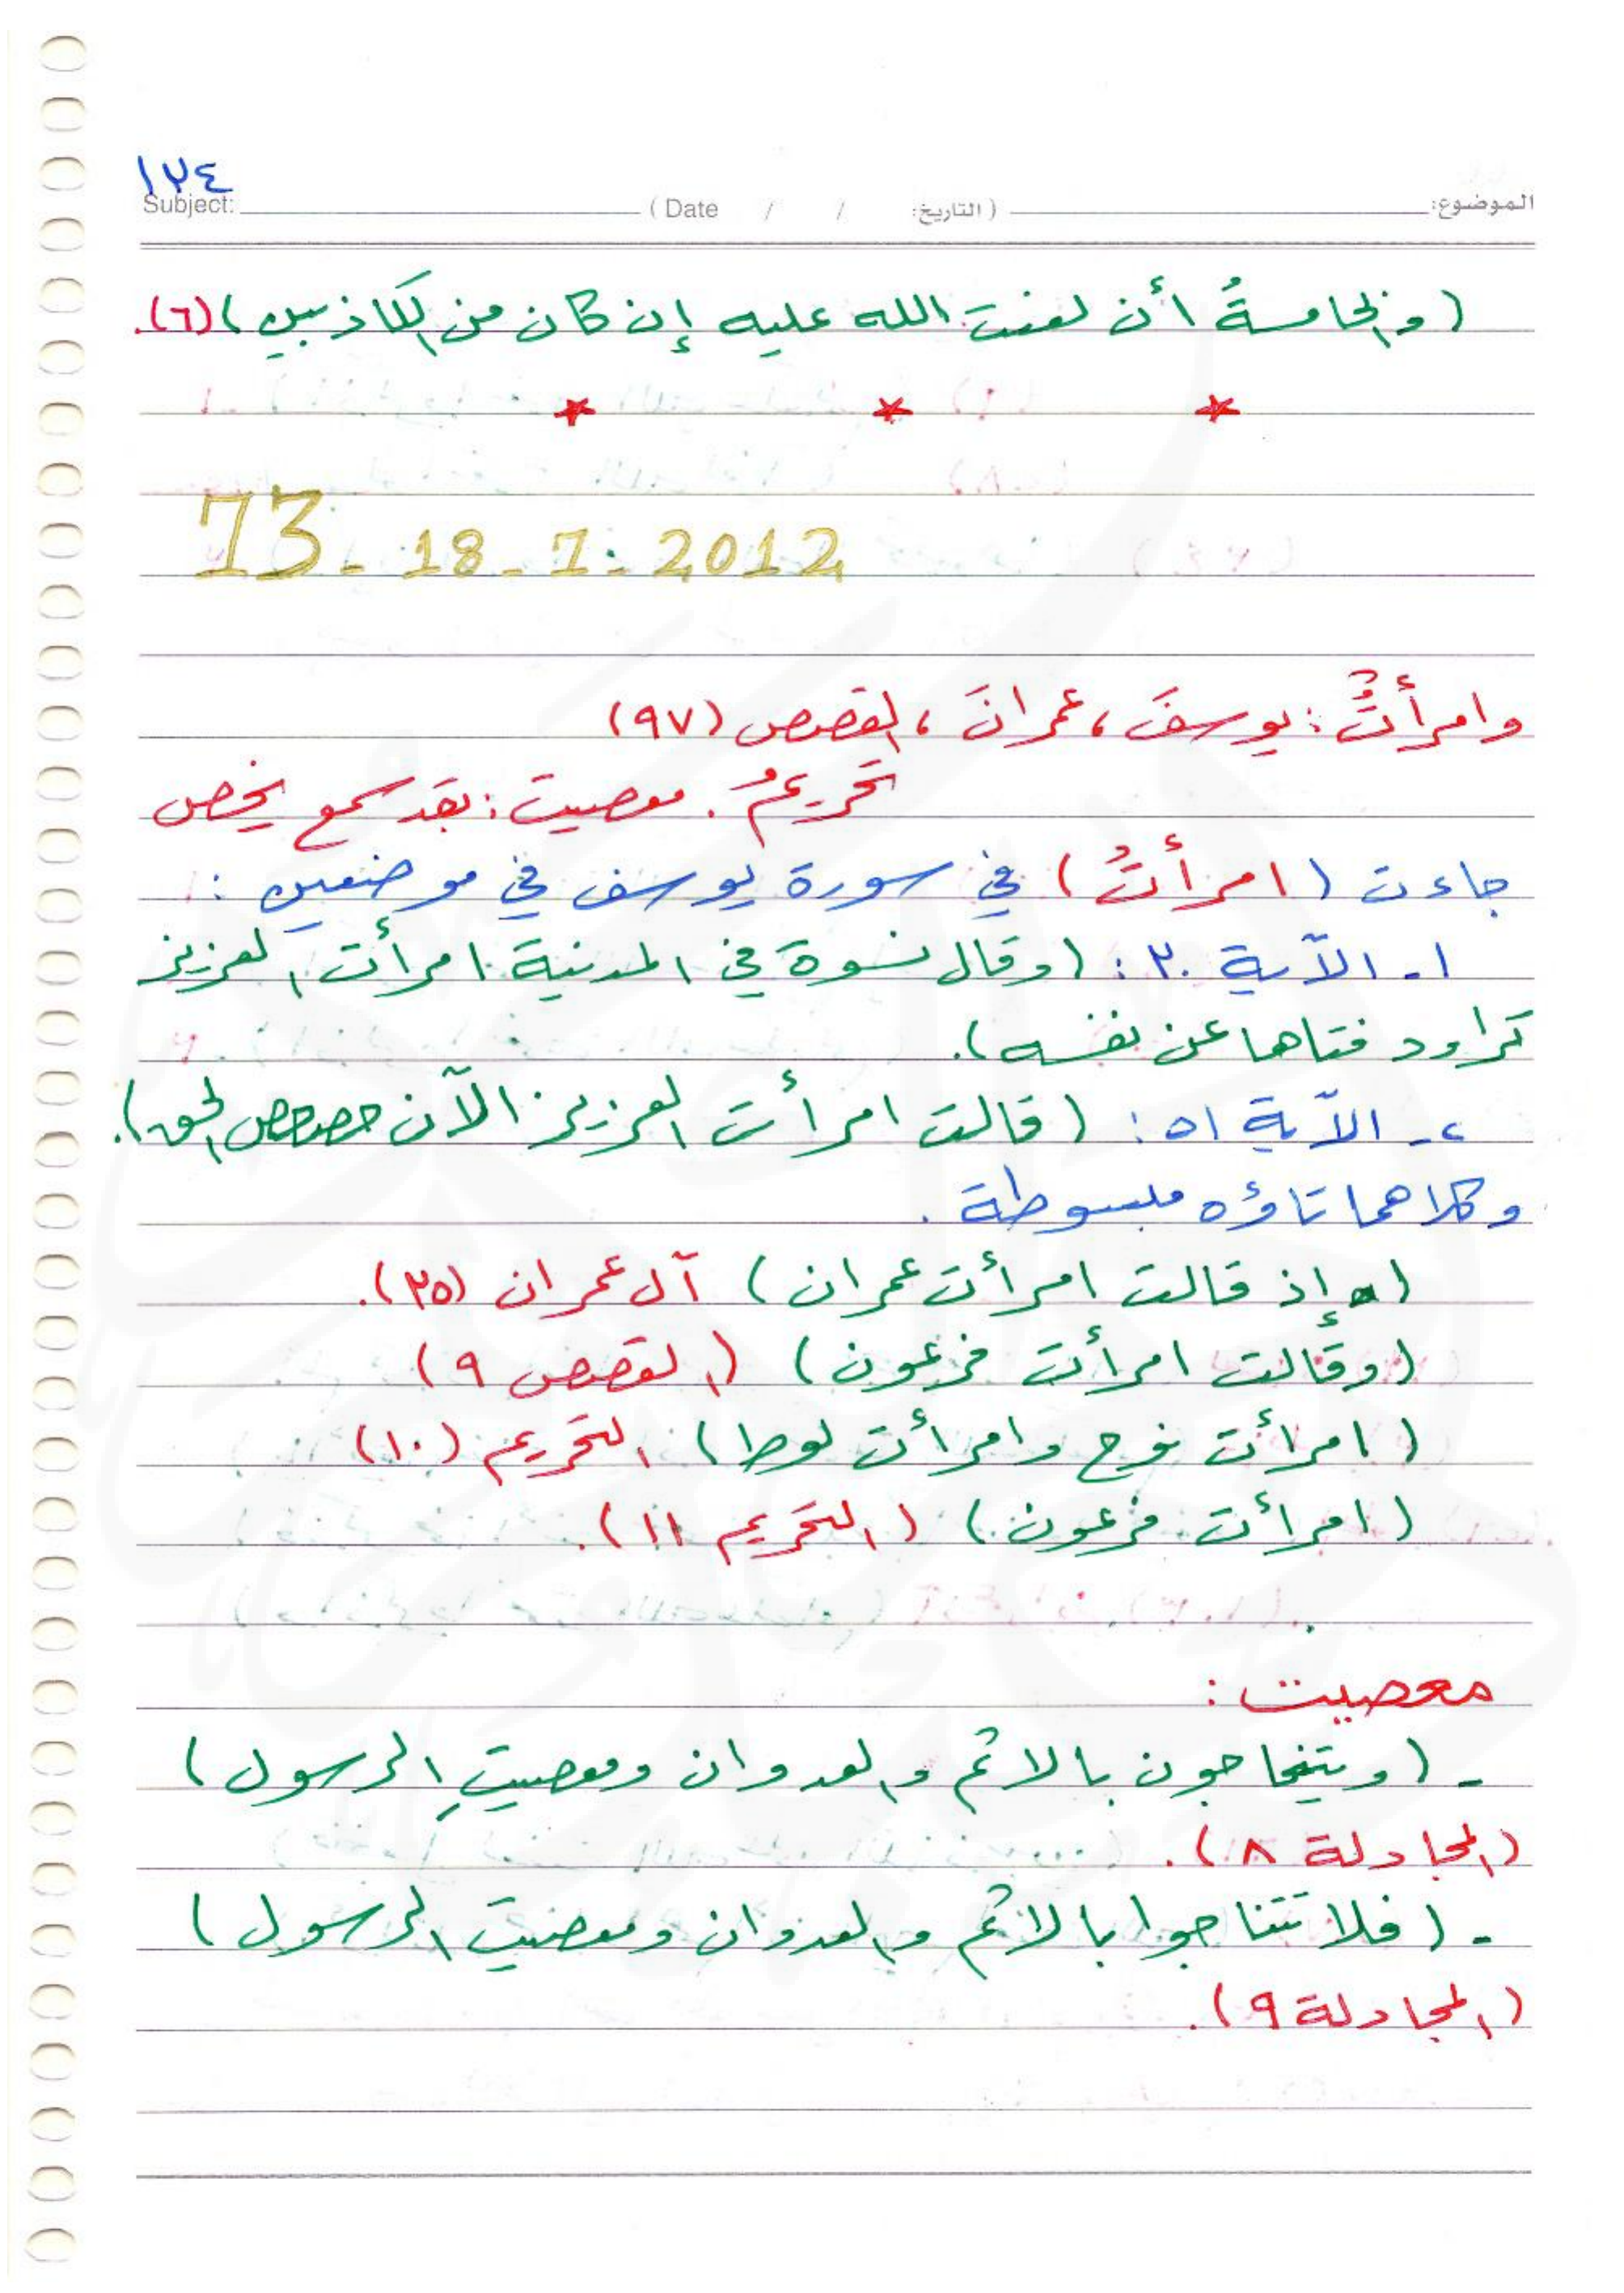 ١٢٤
Subject: ( Date / / التاريخ: ) الموضوع:
(والخامسةُ أن لعنت الله عليه إن كان من الكاذبين) (٦).
73 - 18 - 7 - 2012
وامرأتٌ: يوسفَ، عمرانَ، القصص (٩٧)
تحريمُ. معصيت: بقد سمع يخص
جاءت (امرأتُ) في سورة يوسف في موضعين:
١- الآية ٣٠: (وقال نسوة في المدينة امرأت العزيز
تراود فتاها عن نفسه).
٢- الآية ٥١: (قالت امرأت العزيز الآن حصحص الحق).
وكلاهما تاؤه مبسوطة.
(إذ قالت امرأت عمران) آل عمران (٣٥).
(وقالت امرأت فرعون) (القصص ٩)
(امرأت نوح وامرأت لوط) التحريم (١٠)
(امرأت فرعون) (التحريم ١١).
معصيت:
- (ويتناجون بالاثم والعدوان ومعصيتِ الرسول)
(المجادلة ٨).
- (فلا تتناجوا بالاثم والعدوان ومعصيت الرسول)
(المجادلة ٩).